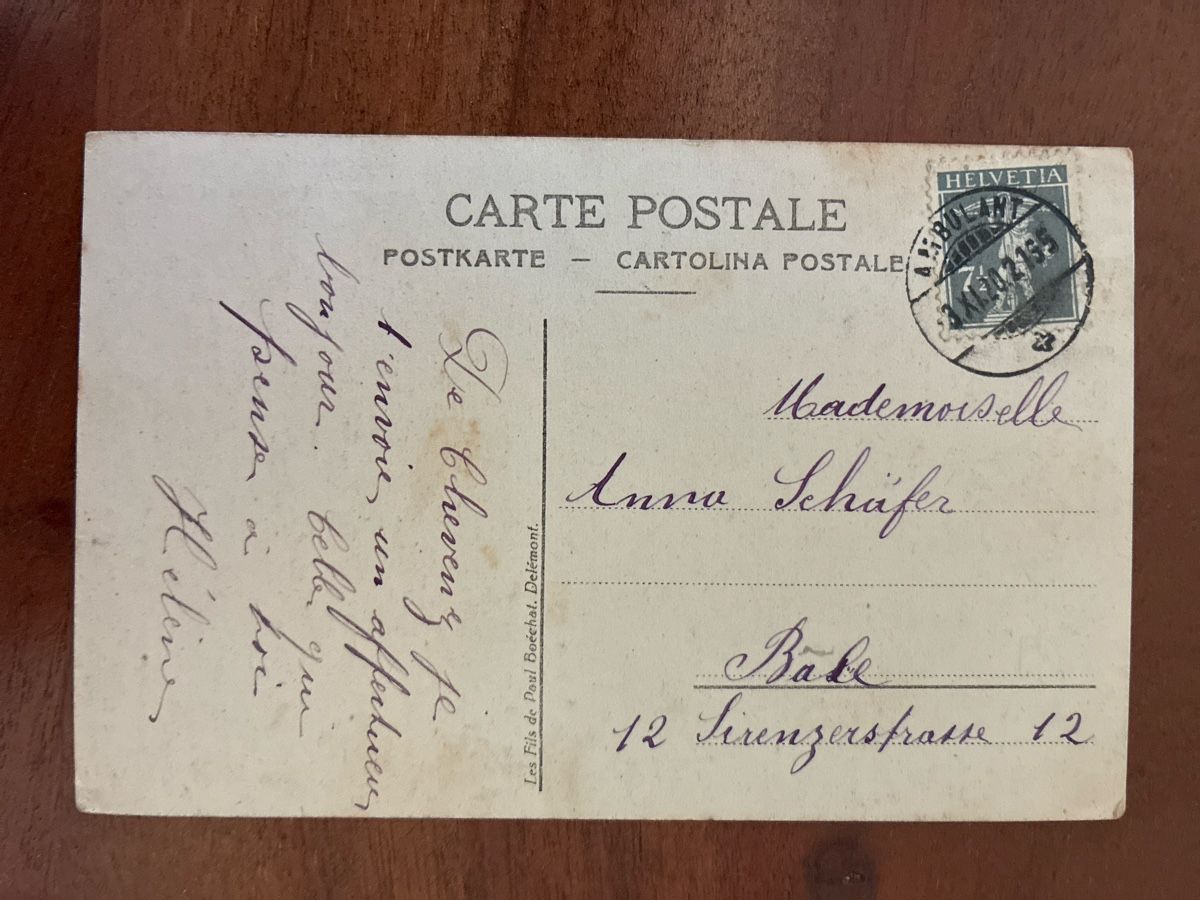 CARTE POSTALE
POSTKARTE – CARTOLINA POSTALE
HELVETIA
7½
AMBULANT
3.XI.20.2165
De Chevenez je
t'envoie un affectueux
bonjour. Celle qui
pense à toi
Hélène
Les Fils de Paul Boéchat. Delémont.
Mademoiselle
Anna Schäfer
Bale
12 Sirenzerstrasse 12